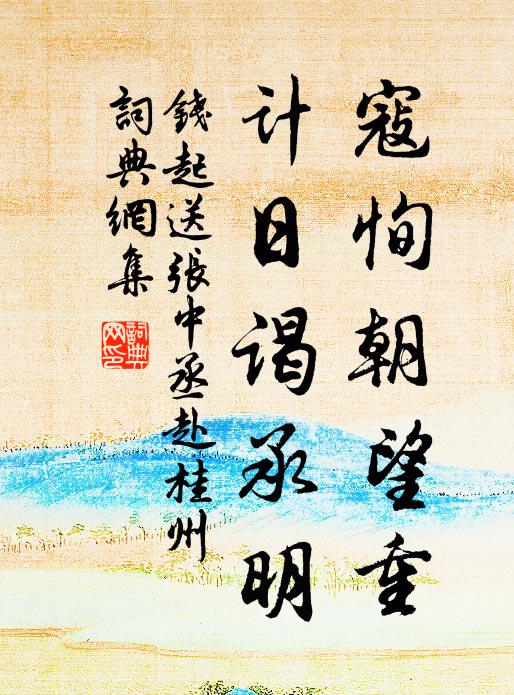 寇恂朝望重
计日谒承明
錢起送張中丞赴桂州
詞典網集
詞典网印